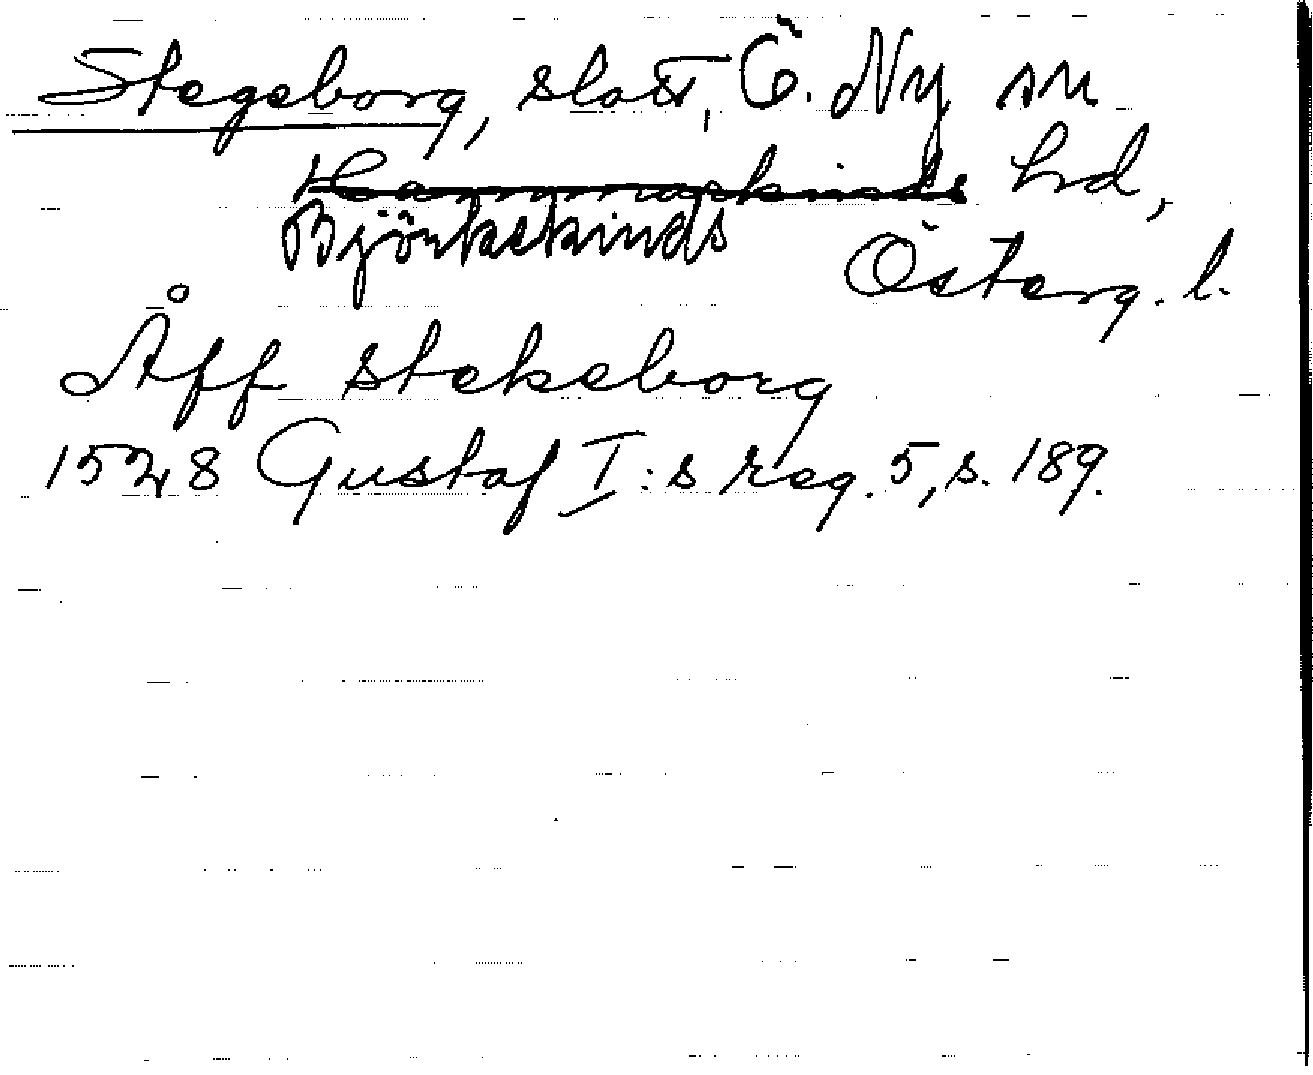 Stegeborg, slott, Ö. Ny sn
Hammarkinds hd,
Björkekinds
Österg. l.
Åff stekeborg
1528 Gustaf I:s reg. 5, s. 189.